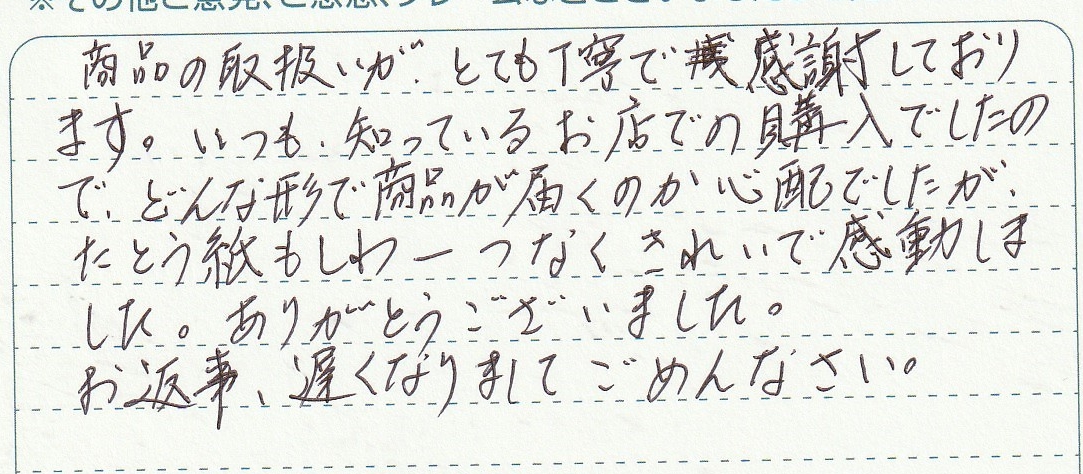 商品の取扱いが、とても丁寧で感謝しており
ます。いつも、知っているお店での購入でしたの
で、どんな形で商品が届くのか心配でしたが、
たとう紙もしわ一つなくきれいで感動しま
した。ありがとうございました。
お返事、遅くなりましてごめんなさい。